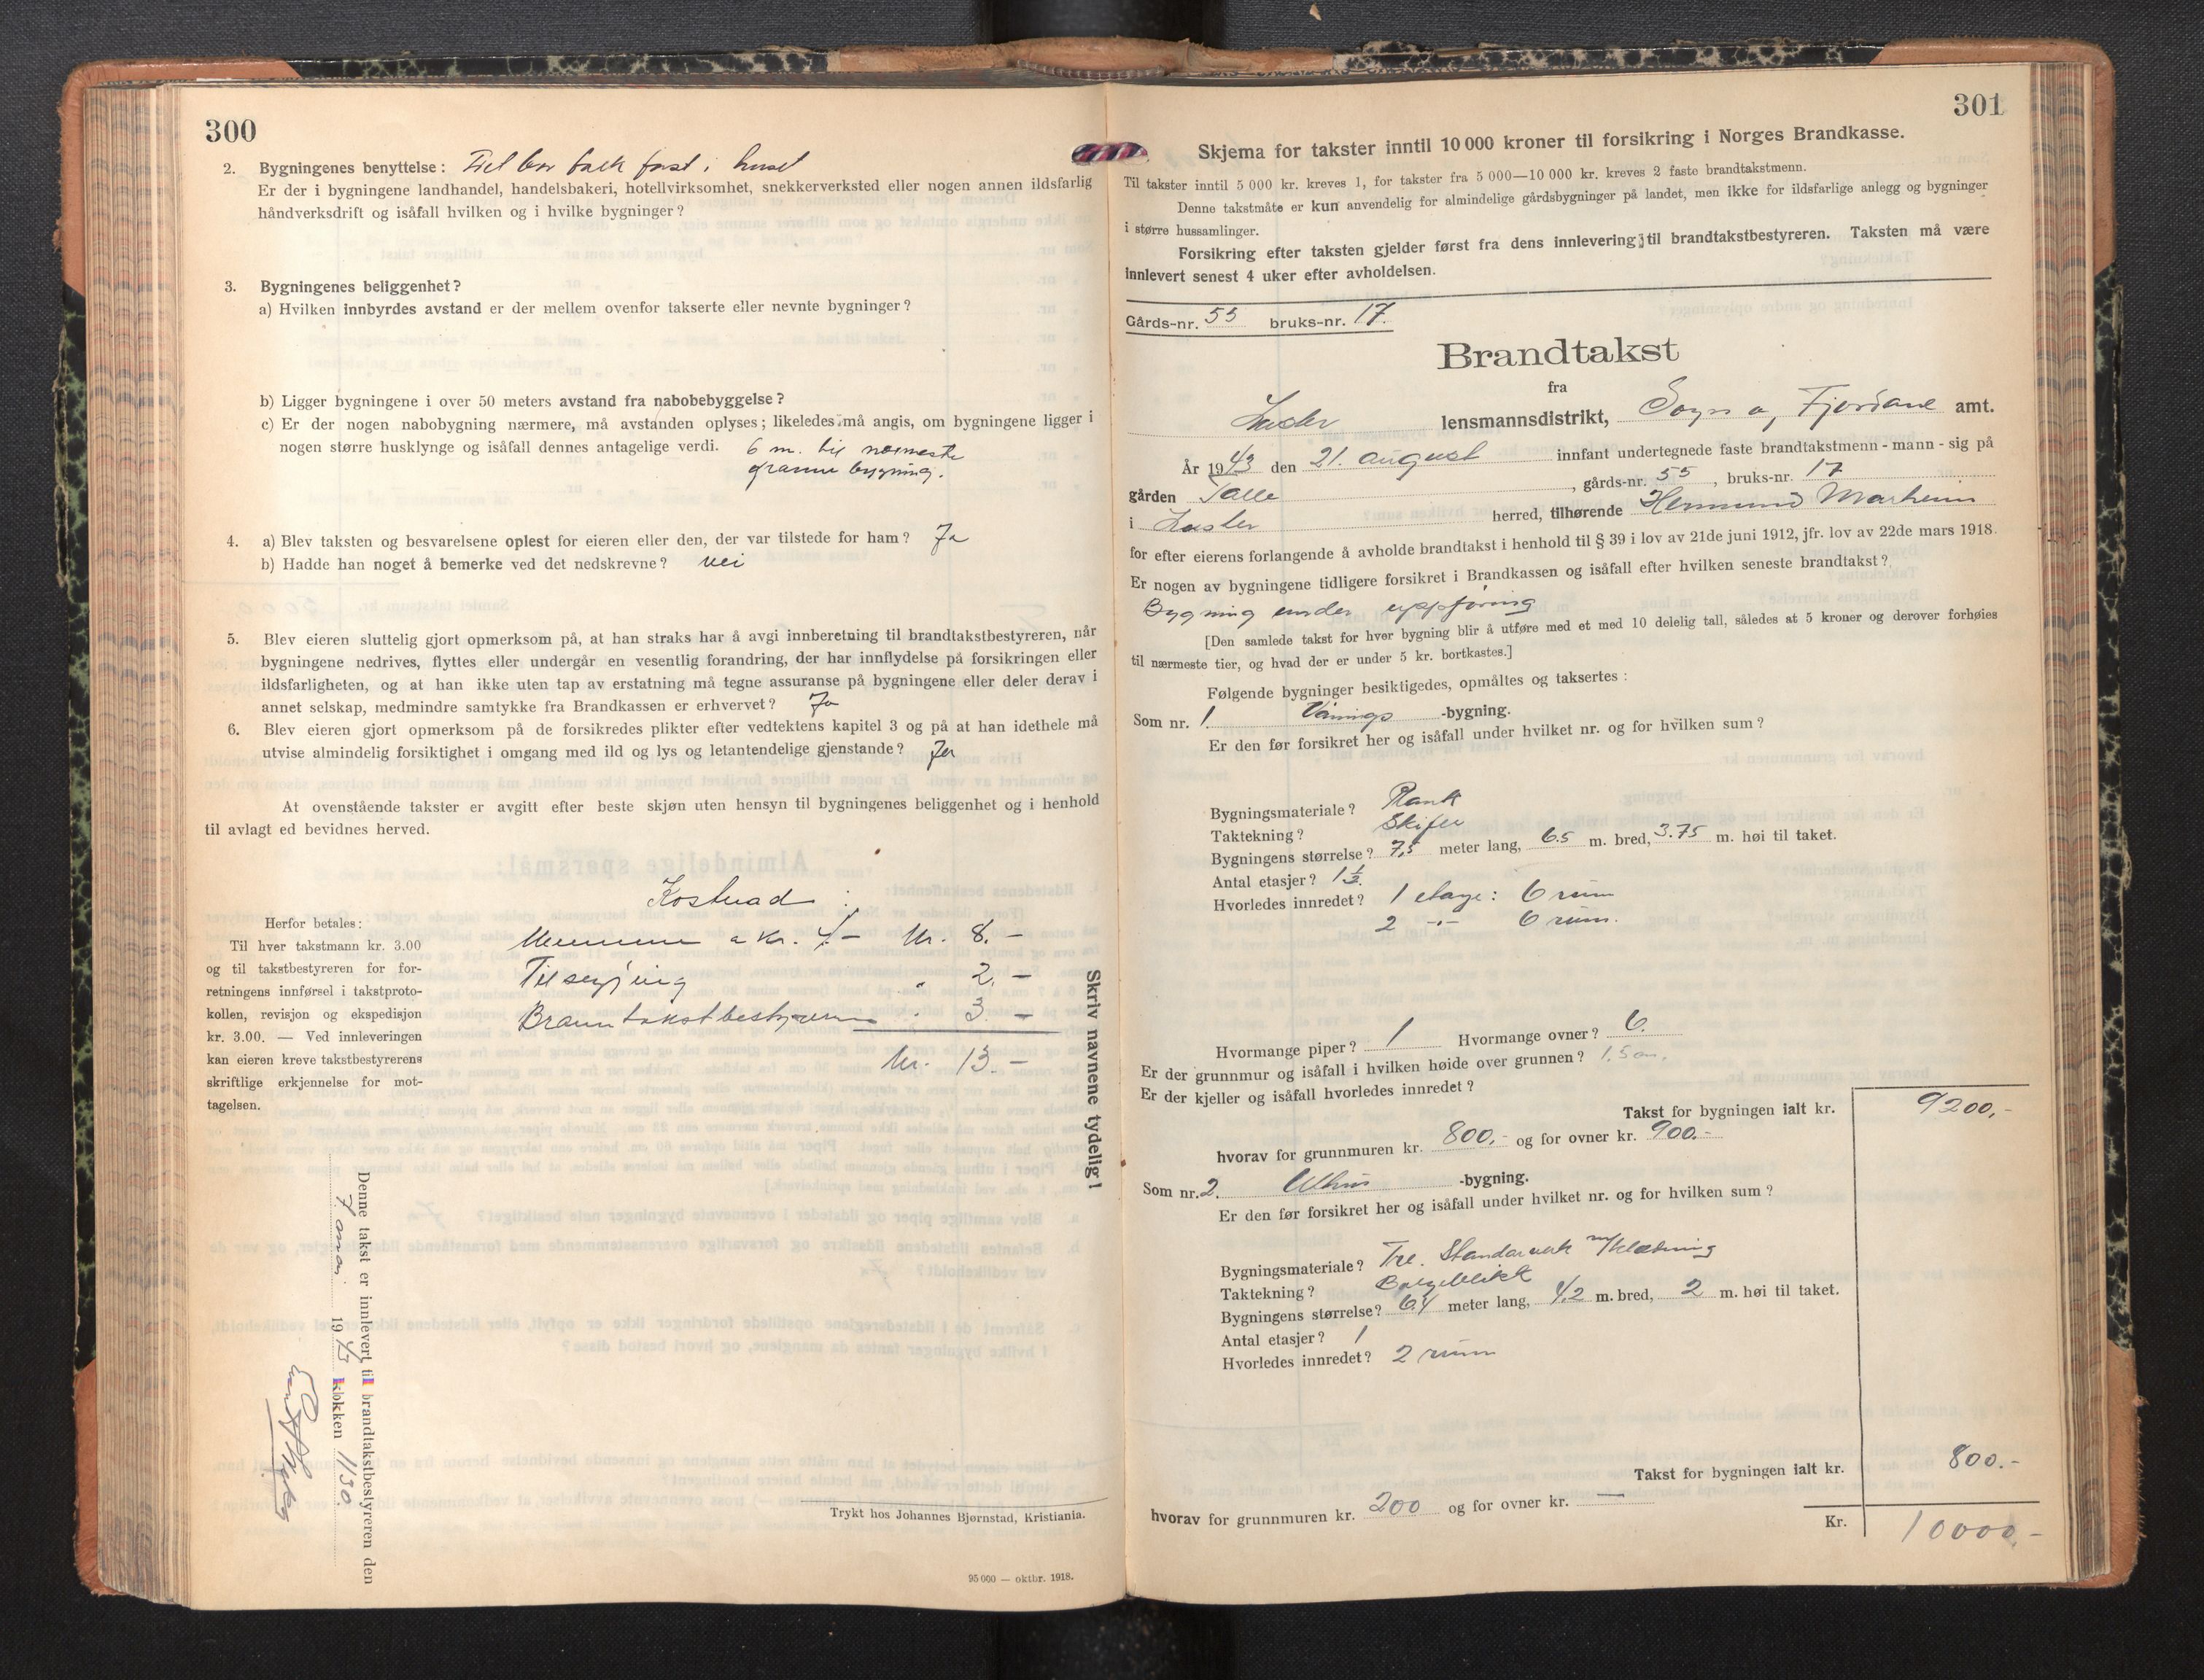 300
2. Bygningenes benyttelse: Det bor folk fast i huset
Er der i bygningene landhandel, handelsbakeri, hotellvirksomhet, snekkerverksted eller nogen annen ildsfarlig
håndverksdrift og isåfall hvilken og i hvilke bygninger?
3. Bygningenes beliggenhet?
a) Hvilken innbyrdes avstand er der mellem ovenfor takserte eller nevnte bygninger?
b) Ligger bygningene i over 50 meters avstand fra nabobebyggelse?
c) Er der nogen nabobygning nærmere, må avstanden oplyses; likeledes må angis, om bygningene ligger i
nogen større husklynge og isåfall dennes antagelige verdi. 6 m. til nærmeste
granne bygning.
4. a) Blev taksten og besvarelsene oplest for eieren eller den, der var tilstede for ham? Ja
b) Hadde han noget å bemerke ved det nedskrevne? nei
5. Blev eieren sluttelig gjort opmerksom på, at han straks har å avgi innberetning til brandtakstbestyreren, når
bygningene nedrives, flyttes eller undergår en vesentlig forandring, der har innflydelse på forsikringen eller
ildsfarligheten, og at han ikke uten tap av erstatning må tegne assuranse på bygningene eller deler derav i
annet selskap, medmindre samtykke fra Brandkassen er erhvervet? Ja
6. Blev eieren gjort opmerksom på de forsikredes plikter efter vedtektens kapitel 3 og på at han idethele må
utvise almindelig forsiktighet i omgang med ild og lys og letantendelige gjenstande? Ja
At ovenstående takster er avgitt efter beste skjøn uten hensyn til bygningenes beliggenhet og i henhold
til avlagt ed bevidnes herved.
Kostnad:
Herfor betales:
Til hver takstmann kr. 3.00
og til takstbestyreren for for-
retningens innførsel i takstproto-
kollen, revisjon og ekspedisjon
kr. 3.00. — Ved innleveringen
kan eieren kreve takstbestyrerens
skriftlige erkjennelse for mot-
tagelsen.
a kr. 4.— kr. 8.—
Tilsegjing " 2.—
Branntakstbestyreren " 3.—
kr. 13.—
Skriv navnene tydelig!
Denne takst er innlevert til brandtakstbestyreren den
1943 klokken 1130
Trykt hos Johannes Bjørnstad, Kristiania.
95 000 — oktbr. 1918.
301
Skjema for takster inntil 10 000 kroner til forsikring i Norges Brandkasse.
Til takster inntil 5 000 kr. kreves 1, for takster fra 5 000—10 000 kr. kreves 2 faste brandtakstmenn.
Denne takstmåte er kun anvendelig for almindelige gårdsbygninger på landet, men ikke for ildsfarlige anlegg og bygninger
i større hussamlinger.
Forsikring efter taksten gjelder først fra dens innlevering til brandtakstbestyreren. Taksten må være
innlevert senest 4 uker efter avholdelsen.
Gårds-nr. 55 bruks-nr. 17.
Brandtakst
fra
Luster lensmannsdistrikt, Sogn o, Fjordane amt.
År 1943 den 21. august innfant undertegnede faste brandtakstmenn - mann - sig på
gården Talle, gårds-nr. 55, bruks-nr. 17
i Luster herred, tilhørende Hermund Marheim
for efter eierens forlangende å avholde brandtakst i henhold til § 39 i lov av 21de juni 1912, jfr. lov av 22de mars 1918.
Er nogen av bygningene tidligere forsikret i Brandkassen og isåfall efter hvilken seneste brandtakst?
Bygning under uppføring
[Den samlede takst for hver bygning blir å utføre med et med 10 delelig tall, således at 5 kroner og derover forhøies
til nærmeste tier, og hvad der er under 5 kr. bortkastes.]
Følgende bygninger besiktigedes, opmåltes og taksertes:
Som nr. 1 Vånings -bygning.
Er den før forsikret her og isåfall under hvilket nr. og for hvilken sum?
Bygningsmateriale? Plank
Taktekning? Skifer
Bygningens størrelse? 7,5 meter lang, 6.5 m. bred, 3.75 m. høi til taket.
Antal etasjer? 1½.
Hvorledes innredet? 1 etage: 6 rum
2 -"- 6 rum.
Hvormange piper? 1 Hvormange ovner? 6.
Er der grunnmur og isåfall i hvilken høide over grunnen? 1.5 m.
Er der kjeller og isåfall hvorledes innredet?
Takst for bygningen ialt kr. 9200,-
hvorav for grunnmuren kr. 800,- og for ovner kr. 900.-
Som nr. 2. Uthus -bygning.
Er den før forsikret her og isåfall under hvilket nr. og for hvilken sum?
Bygningsmateriale? Tre. Standarverk m/klædning
Taktekning? Bølgeblikk
Bygningens størrelse? 6.4 meter lang, 4.2 m. bred, 2 m. høi til taket.
Antal etasjer? 1
Hvorledes innredet? 2 rum
Takst for bygningen ialt kr. 800.-
hvorav for grunnmuren kr. 200 og for ovner kr. —
Kr. 10000,-